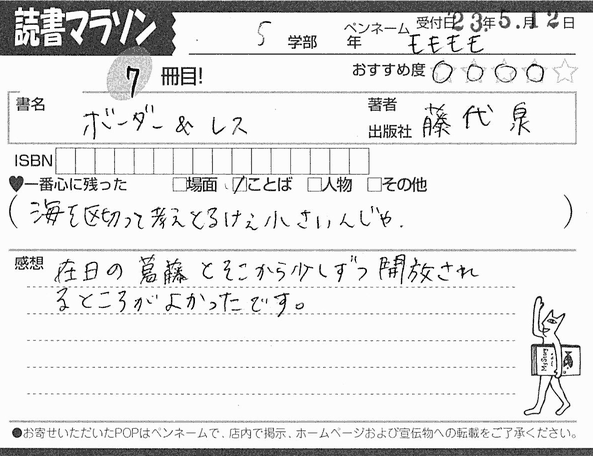 読書マラソン
受付日 23年5.月12日
5 学部 年 ペンネーム モモモモ
7 冊目!
おすすめ度 ○○○○☆
書名 ボーダー&レス
著者 出版社 藤代泉
ISBN
♥一番心に残った □場面 ☑ことば □人物 □その他
(海を区切って考えとるけえ小さいんじゃ.)
感想 在日の葛藤とそこから少しずつ開放され
るところがよかったです。
●お寄せいただいたPOPはペンネームで、店内で掲示、ホームページおよび宣伝物への転載をご了承ください。